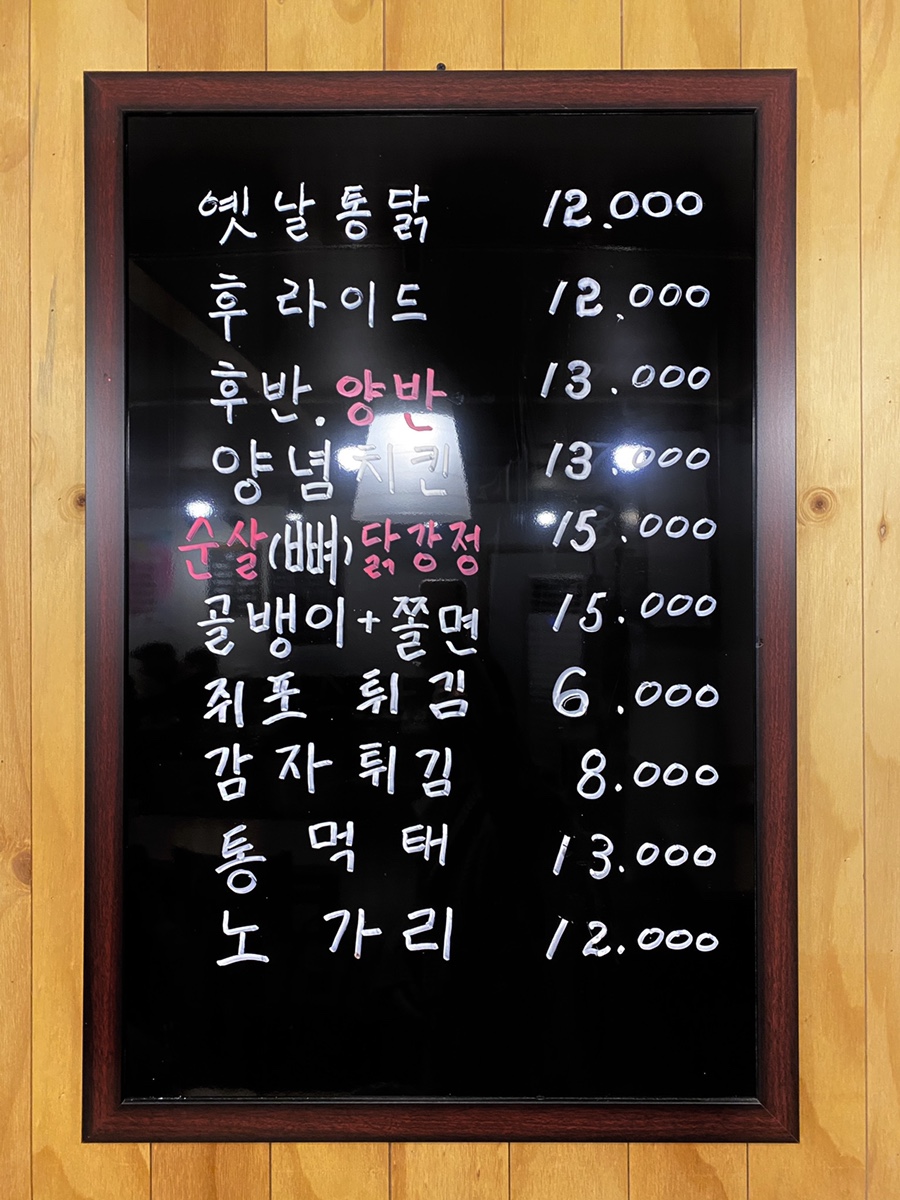 옛날통닭 12.000
후라이드 12.000
후반.양반 13.000
양념치킨 13.000
순살(뼈)닭강정 15.000
골뱅이+쫄면 15.000
쥐포 튀김 6.000
감자튀김 8.000
통먹태 13.000
노가리 12.000